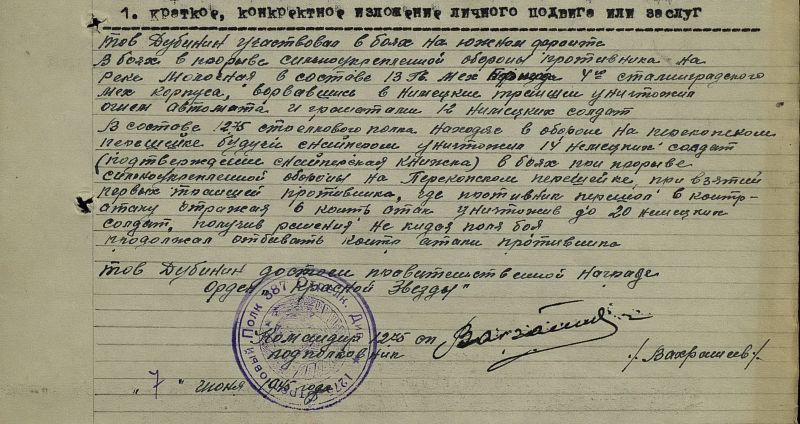 1. краткое, конкретное изложение личного подвига или заслуг
тов Дубинин участвовал в боях на южном фронте
В боях в прорыве сильноукрепленной обороны противника на
реке Молочная в составе 13 Гв мех Бригады 4го сталинградского
мех корпуса, ворвавшись в немецкие траншеи уничтожил
огнем автомата и гранатами 12 немецких солдат
В составе 1275 стрелкового полка находясь в обороне на перекопском
перешейке будучи снайпером уничтожил 14 немецких солдат
(подтверждении снайперская книжка) в боях при прорыве
сильноукрепленной обороны на Перекопском перешейке, при взятии
первых траншей противника, где противник перешол в контр-
атаку отражая 6 контр атак уничтожив до 20 немецких
солдат, получив ранения не кидая поля боя
продолжал отбивать контр атаки противника
тов Дубинин достоин правительственной награде
Орден "Красной Звезды"
Командир 1275 сп
подполковник
/Вахрашев/
"7" июня 1945 года
1275 Стрелковый Полк 387